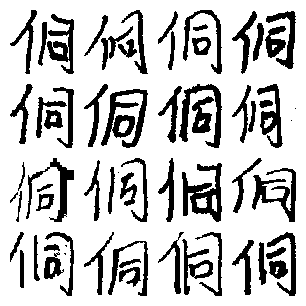 侗侗侗侗
侗侗侗侗
侗侗侗侗
侗侗侗侗